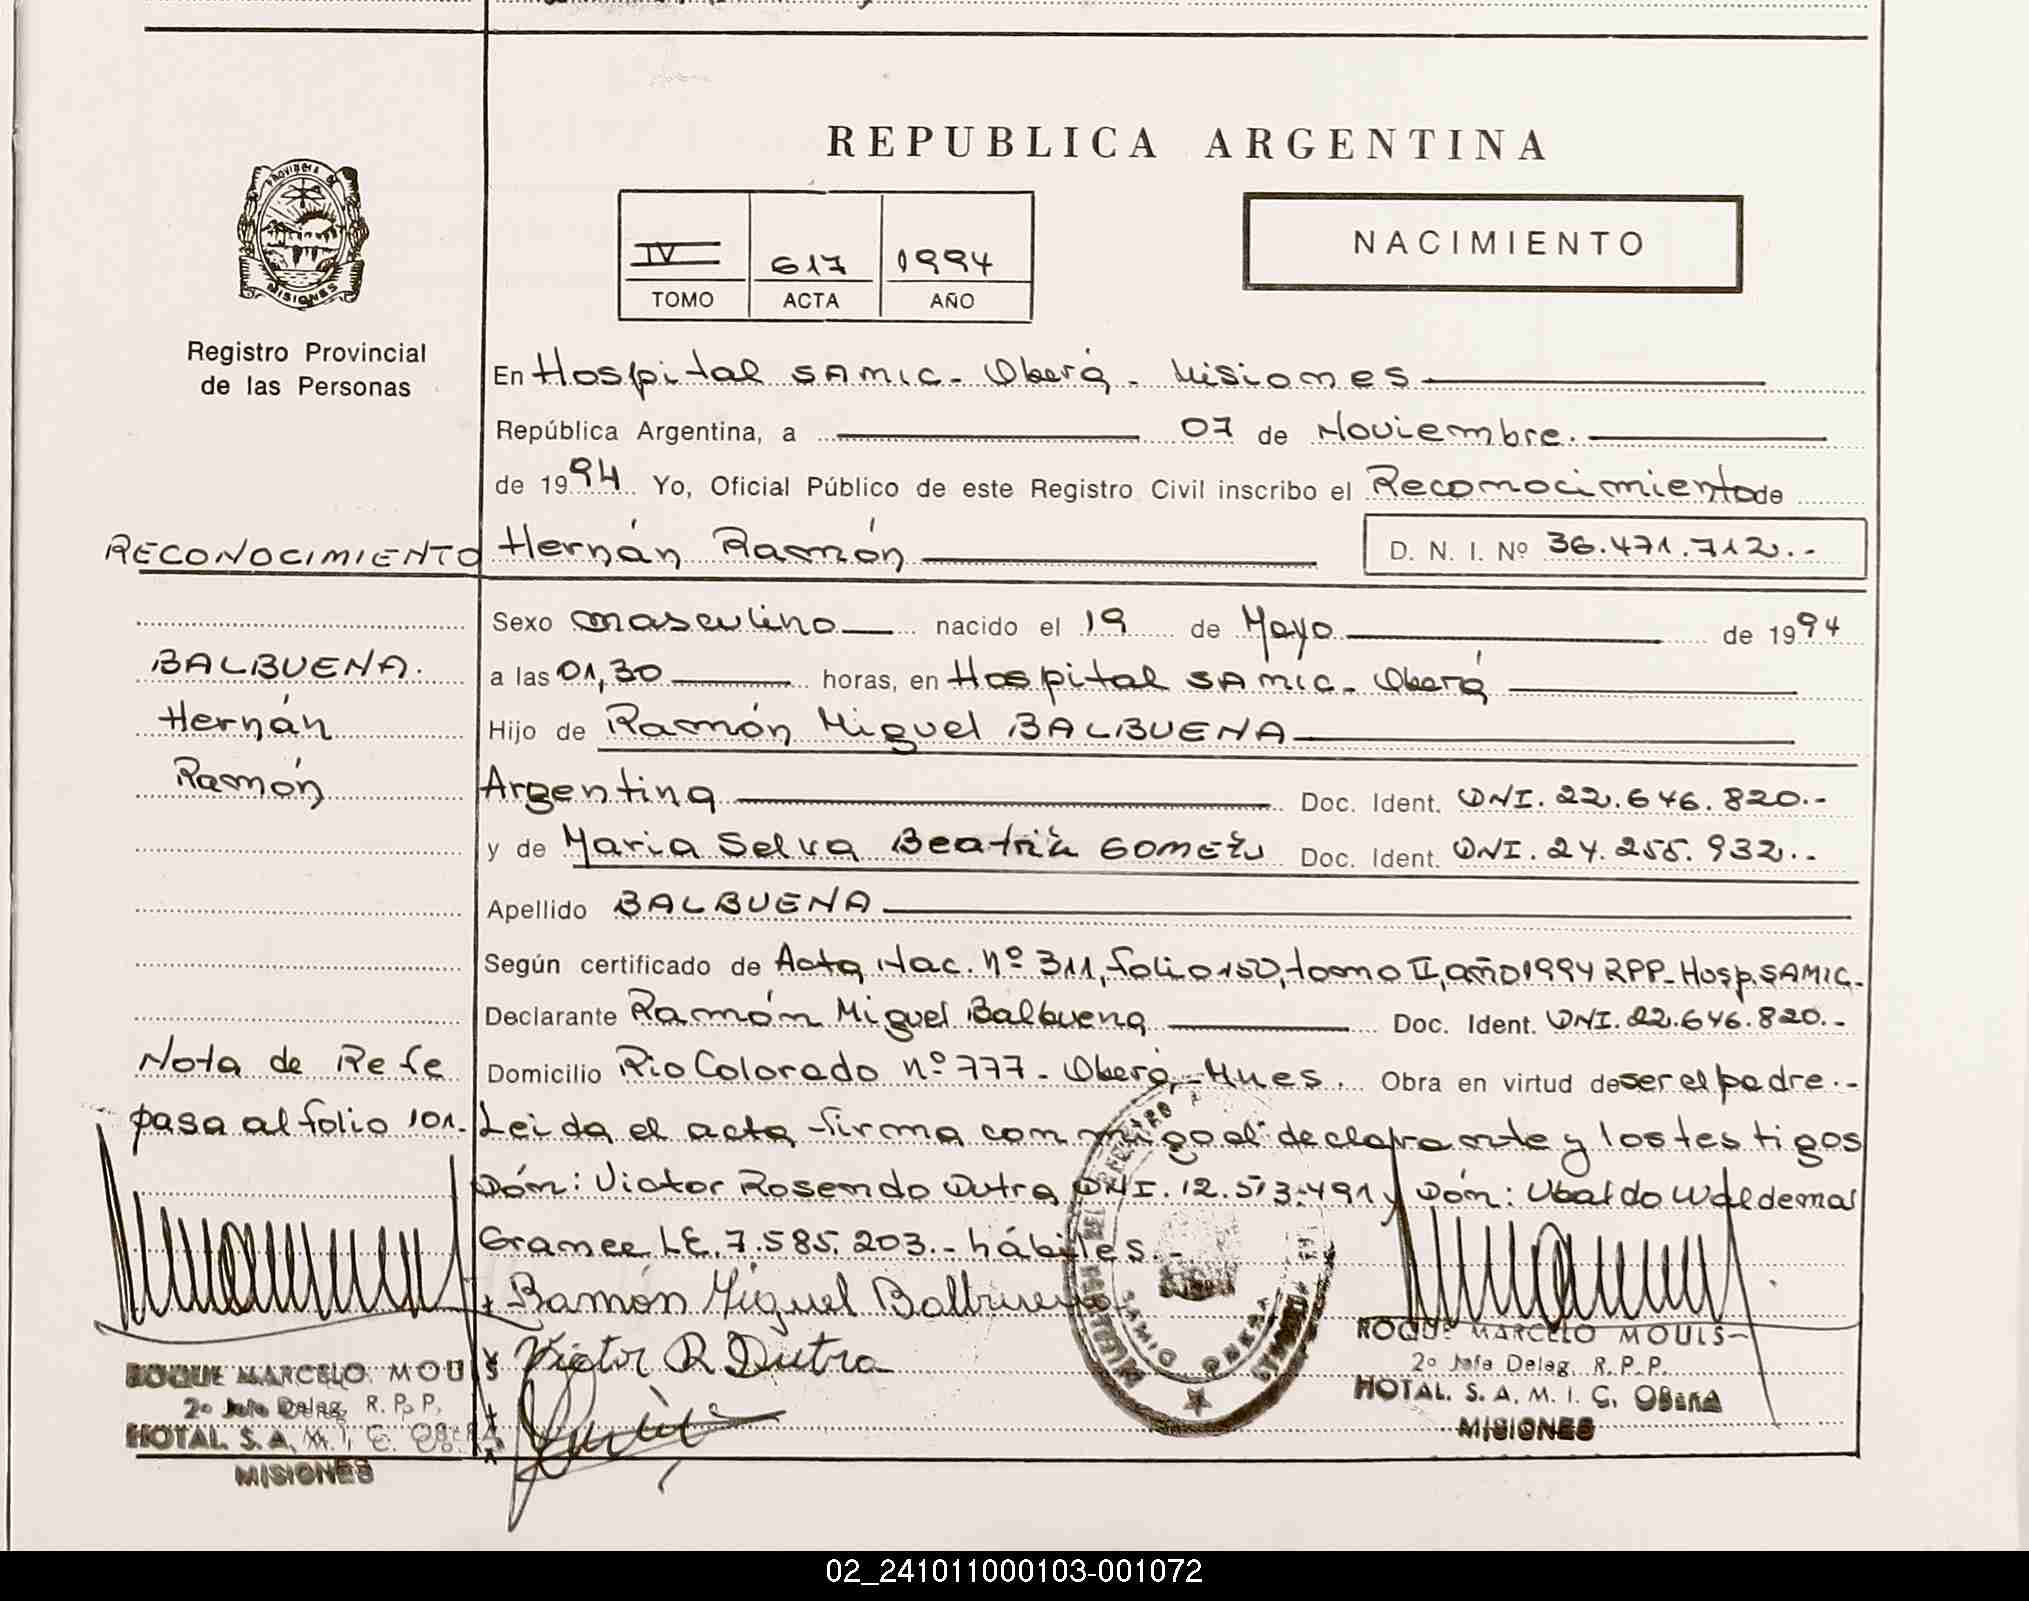 REPUBLICA ARGENTINA
Provincia de
MISIONES
Registro Provincial
de las Personas
IV 617 1994
TOMO ACTA AÑO
NACIMIENTO
En Hospital SAMIC - Oberá - Misiones
República Argentina, a 07 de Noviembre.
de 1994 Yo, Oficial Público de este Registro Civil inscribo el Reconocimiento de
RECONOCIMIENTO
Hernán Ramón D. N. I. Nº 36.471.712.-
Sexo masculino nacido el 19 de Mayo de 1994
BALBUENA.
a las 01,30 horas, en Hospital SAMIC - Oberá
Hernán
Hijo de Ramón Miguel BALBUENA
Ramón
Argentina Doc. Ident. DNI. 22.646.820.-
y de Maria Selva Beatriz GOMEZ Doc. Ident. DNI. 24.255.932.-
Apellido BALBUENA
Según certificado de Acta Nac. nº 311, folio 150, tomo II, año 1994 RPP- Hosp. SAMIC.
Declarante Ramón Miguel Balbuena Doc. Ident. DNI. 22.646.820.-
Nota de Refe
Domicilio Rio Colorado nº 777 - Oberá - Mnes. Obra en virtud de ser el padre.-
pasa al folio 101.
Leida el acta firma con migo el declarante y los testigos
Dón: Victor Rosendo Dutra DNI. 12.513.491 y Dón: Ubaldo Waldemar
Gramee LE. 7.585.203.- hábiles.-
Ramón Miguel Balbuena
Victor R Dutra
ROQUE MARCELO MOULS
2º Jefe Deleg. R. P. P.
HOTAL. S. A. M. I. C. OBERA
MISIONES
ROQUE MARCELO MOULS
2º Jefe Deleg. R. P. P.
HOTAL. S. A. M. I. C. OBERA
MISIONES
02_241011000103-001072